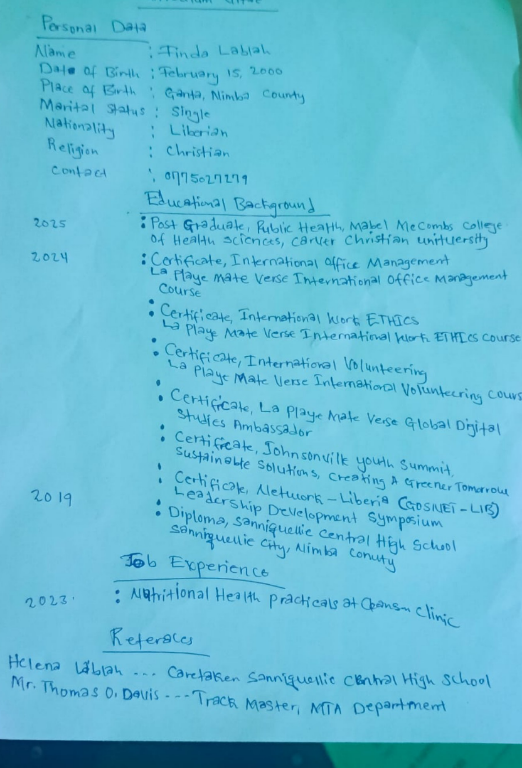 Personal Data
Name : Tinda Lablah
Date of Birth : February 15, 2000
Place of Birth : Ganta, Nimba County
Marital Status : Single
Nationality : Liberian
Religion : Christian
Contact : 0775027279
Educational Background
2025 : Post Graduate, Public Health, Mabel McCombs College
of Health Sciences, Carver Christian unituersity
2024 : Certificate, International Office Management
La Playe Mate Verse International Office Management
Course
• Certificate, International Work ETHICS
La Playe Mate Verse International Work ETHICS course
• Certificate, International Volunteering
La Playe Mate Verse International Volunteering Cours
• Certificate, La Playe Mate Verse Global Digital
Studies Ambassador
• Certificate, Johnsonville youth Summit,
Sustainable Solutions, Creating A Greener Tomorrow
• Certificate, Network-Liberia (GOSNET-LIB)
Leadership Development Symposium
2019 • Diploma, Sanniquellie Central High School
Sanniquellie City, Nimba Conuty
Job Experience
2023 : Nutritional Health practicals at Clinic
References
Helena Lablah --- Caretaken Sanniquellie Central High School
Mr. Thomas O. Davis --- Track Master, MTA Department